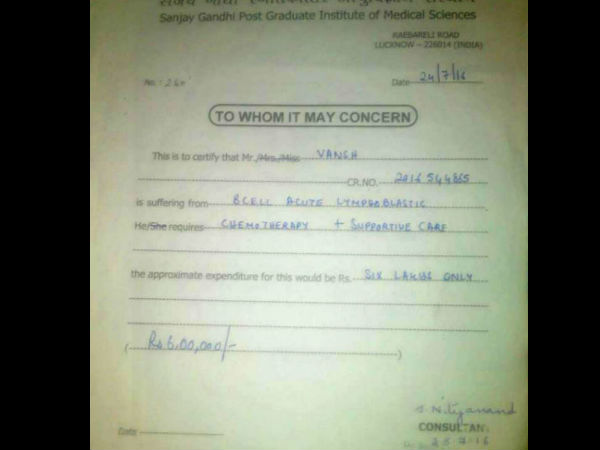 Sanjay Gandhi Post Graduate Institute of Medical Sciences
RAEBARELI ROAD
LUCKNOW - 226014 (INDIA)
No.:
Date 24/7/16
TO WHOM IT MAY CONCERN
This is to certify that Mr./Mrs./Miss VANSH
CR.NO. 2016544865
is suffering from BCELL ACUTE LYMPHOBLASTIC
He/She requires CHEMOTHERAPY + SUPPORTIVE CARE
the approximate expenditure for this would be Rs. SIX LAKHS ONLY
( Rs 6,00,000/- )
S. Nityanand
CONSULTAN
Date
25 7 16